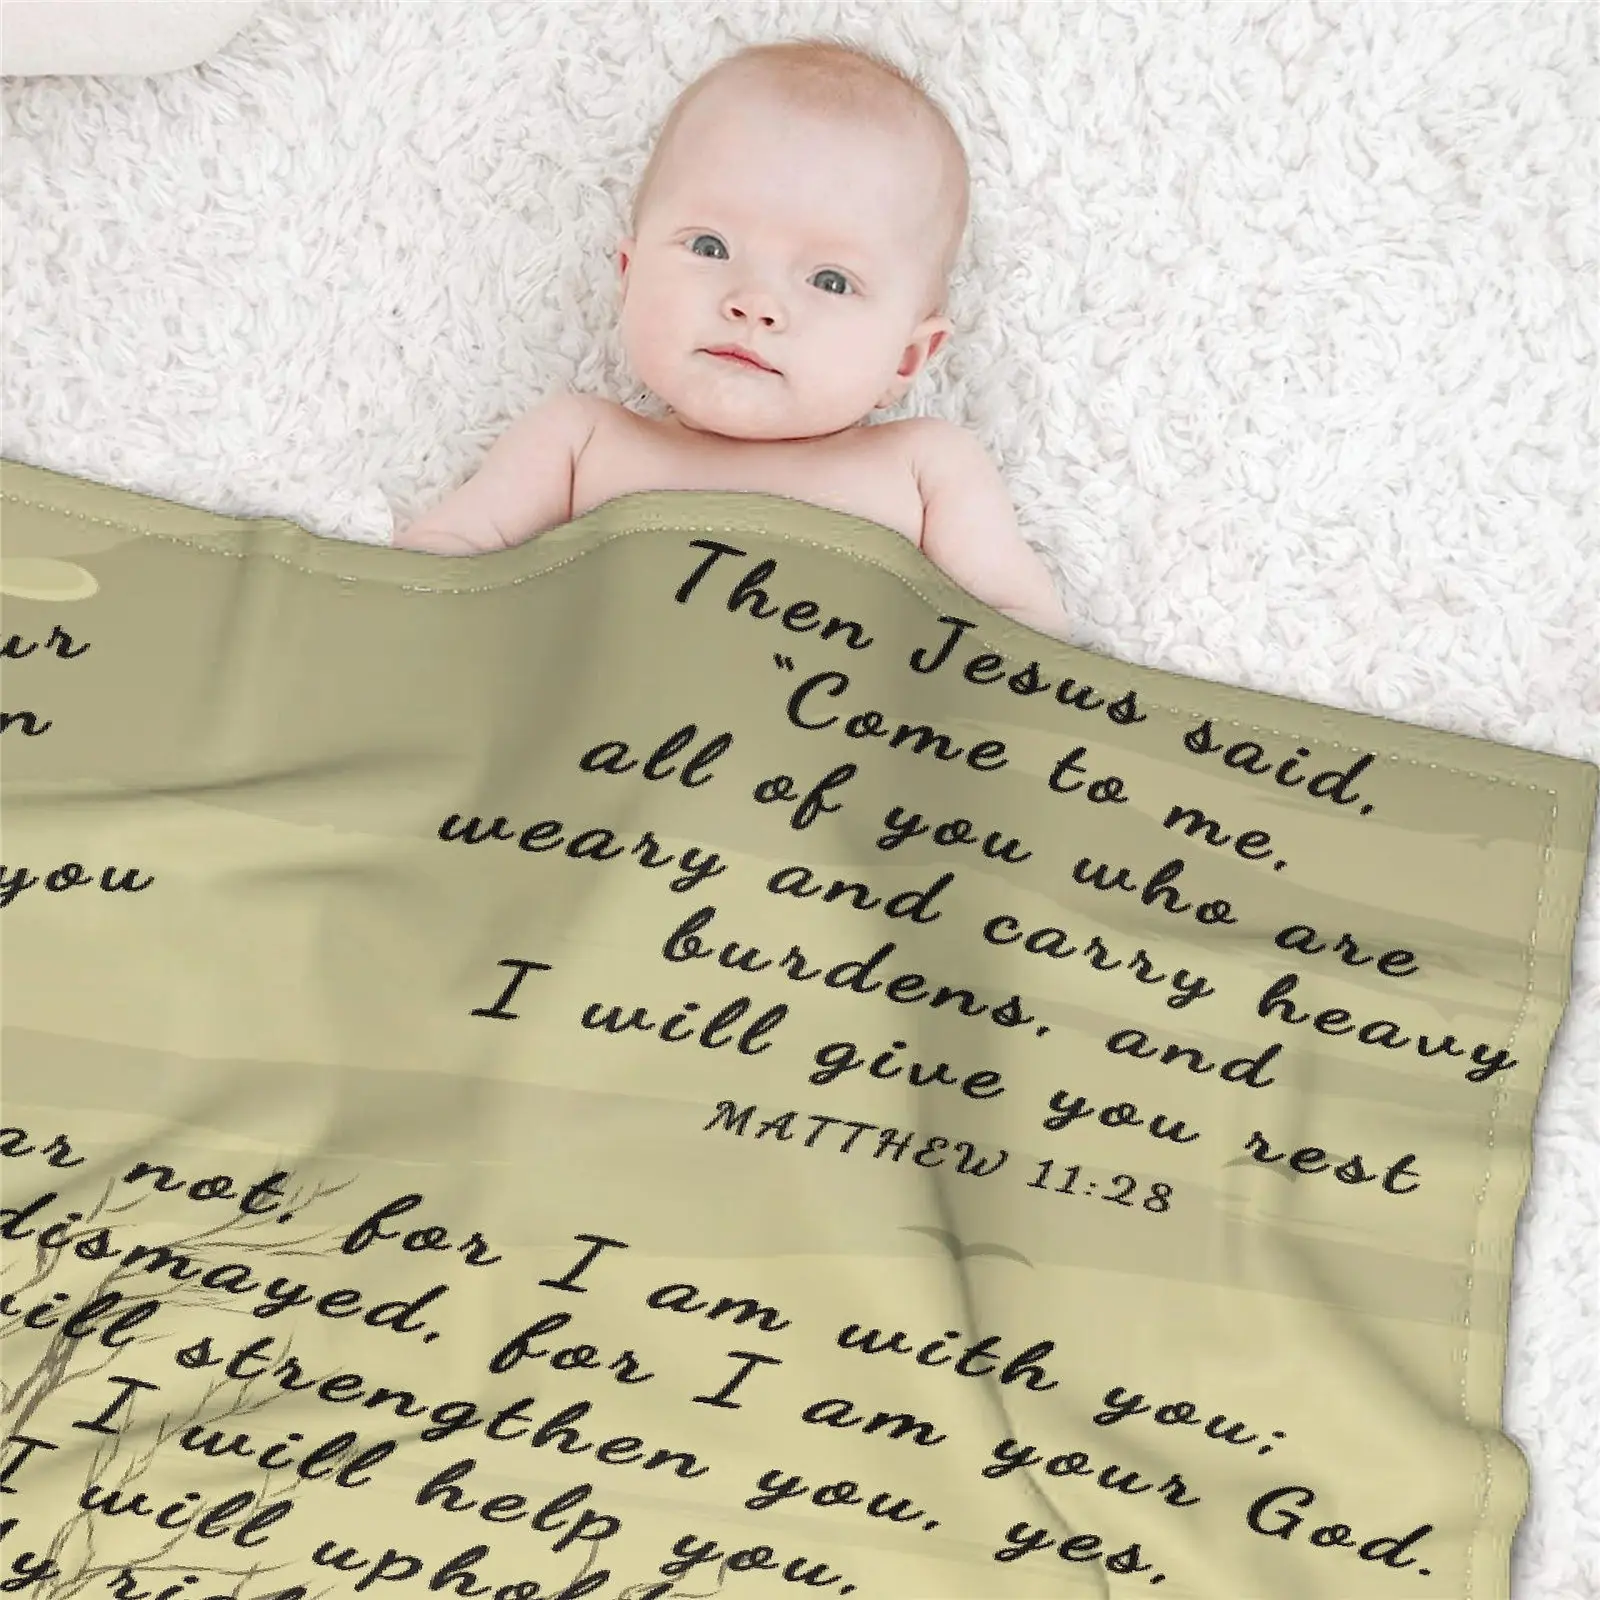 Then Jesus said,
"Come to me,
all of you who are
weary and carry heavy
burdens, and
I will give you rest
MATTHEW 11:28
you
not, for I am with you;
dismayed, for I am your God.
will strengthen you, yes,
I will help you,
I will uphol